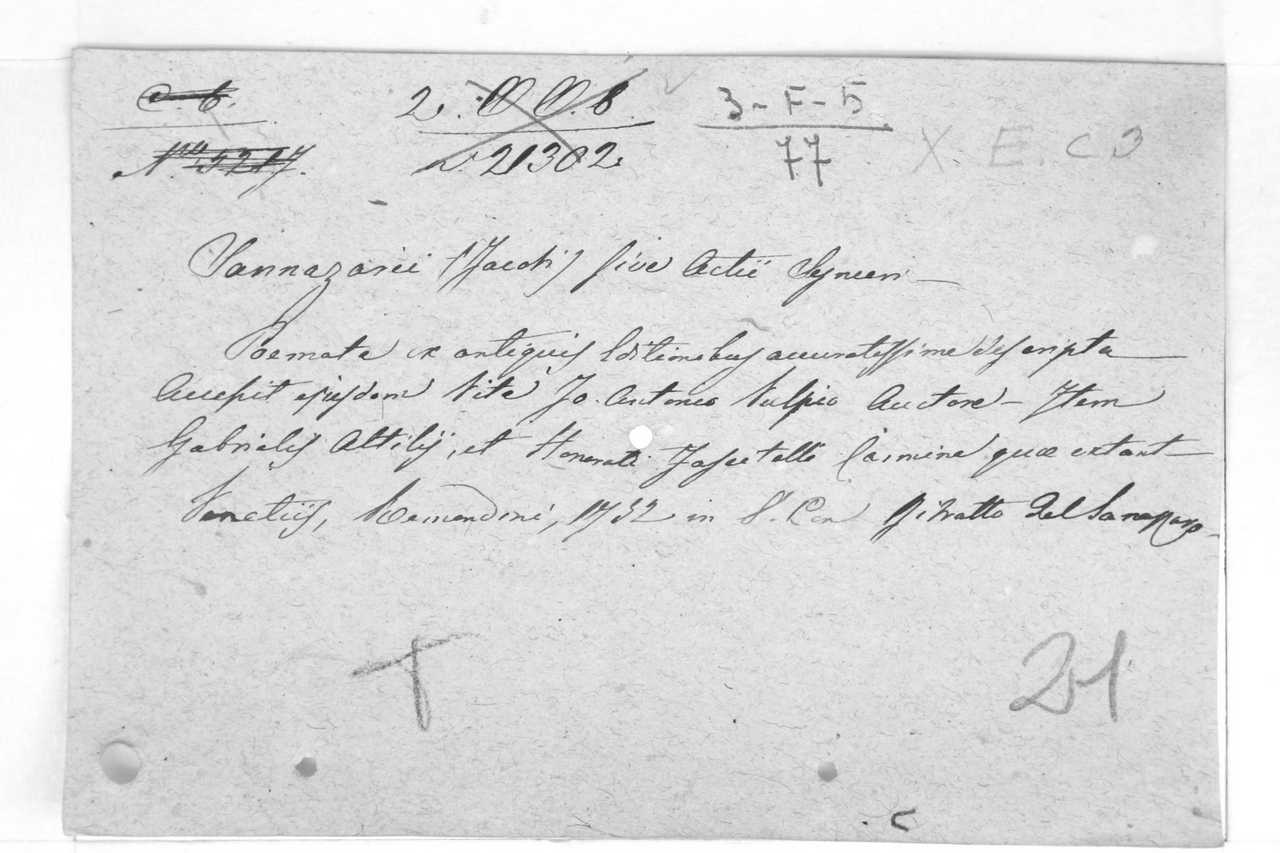 C b.
2. O O. 6.
3-F-5
X. E. C 3
N.ro 5217.
N. 21382.
77
Sannazarii (Jacobi) sive Actii Synceri
Poemata ex antiquis Editionibus accuratissime descripta
Accessit ejusdem Vita Jo. Antonio Vulpio Auctore - Item
Gabrielis Altilij, et Honorati Fascitelli Carmina quæ extant
Venetiis, Remondini, 1752 in 8. Con Ritratto del Sanazaro
T
21